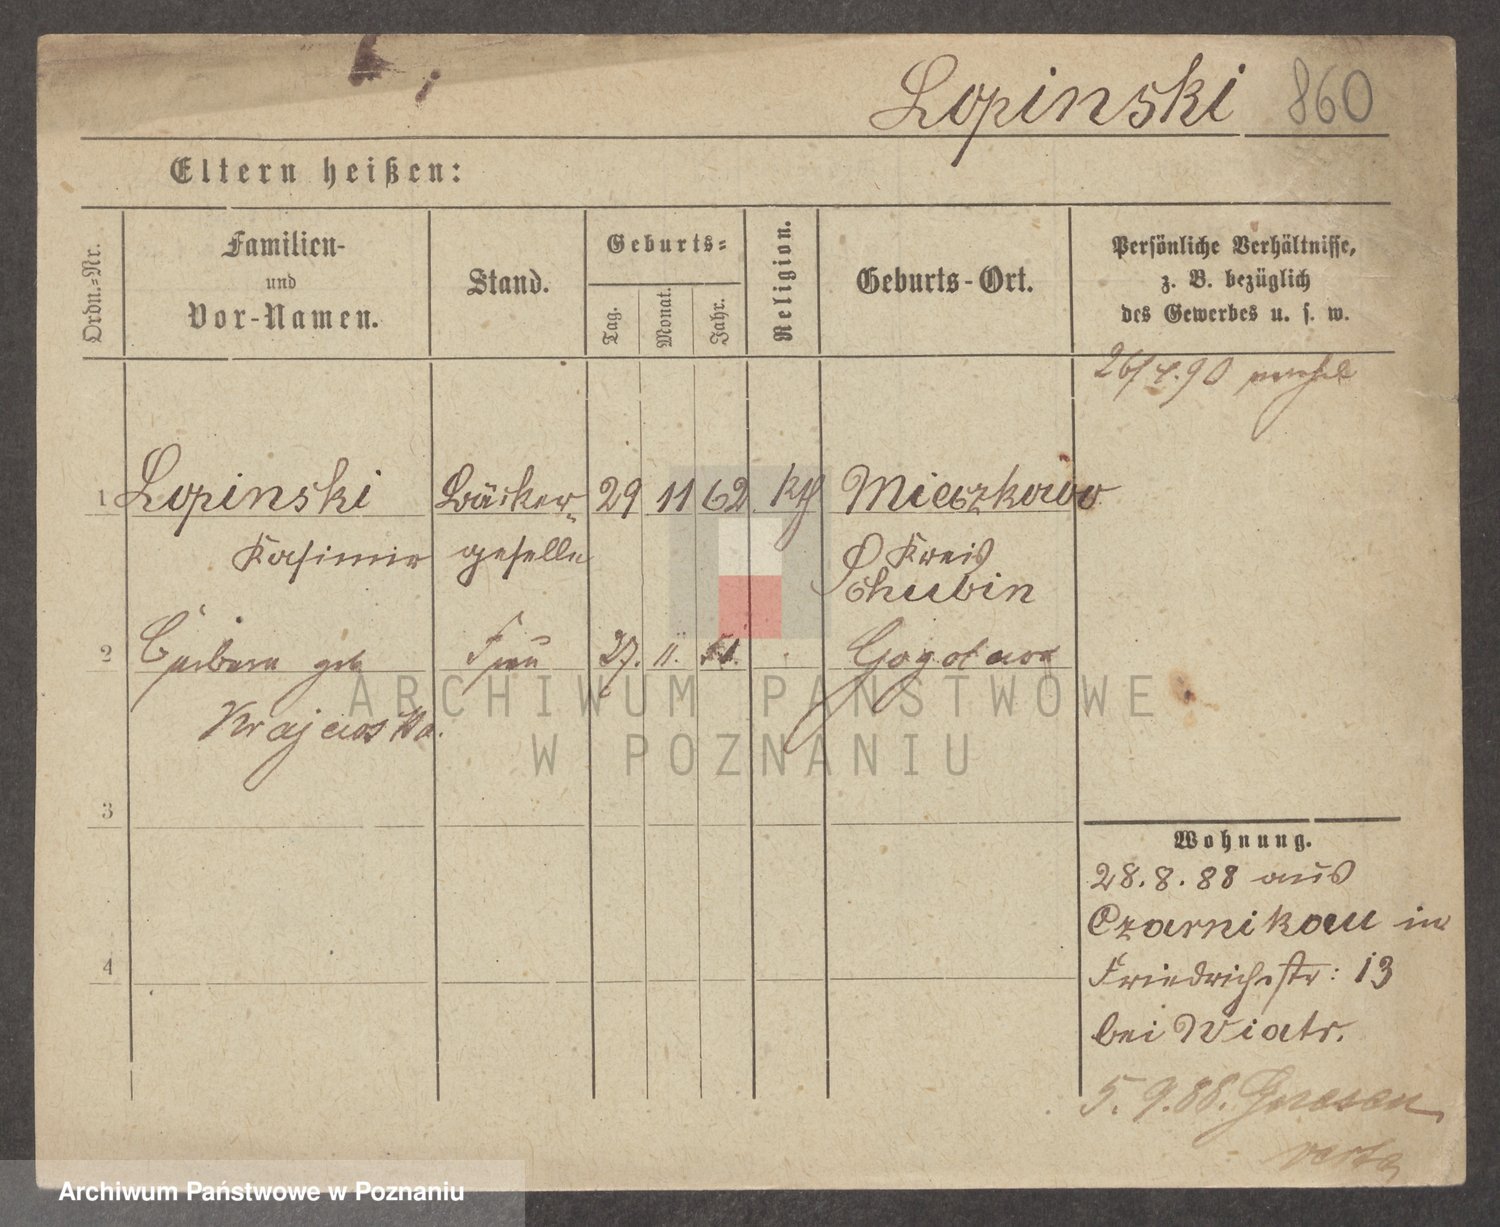 Lopinski 860
Eltern heißen:
Ordn.-Nr.
Familien-
und
Vor-Namen.
Stand.
Geburts-
Tag.
Monat.
Jahr.
Religion.
Geburts-Ort.
Persönliche Verhältnisse,
z. B. bezüglich
des Gewerbes u. s. w.
90
1 Lopinski Bäcker- 29 11 62 kth Mieczkowo
Kasimir geselle Kreis
Schubin
2 geb Frau 27. 11.
ARCHIWUM PAŃSTWOWE
W POZNANIU
3
Wohnung.
28.8.88 aus
Czarnikau in
4
Friedrichstr: 13
bei Wiatr.
5. 9.88. Gnesen
Archiwum Państwowe w Poznaniu